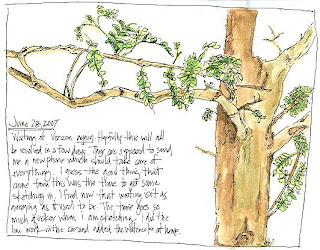 June 28, 2007
Victim of Verizon again. Hopefully this will all
be resolved in a few days. They are supposed to send
me a new phone which should take care of
everything. I guess the good thing that
came from this was the time to get some
sketching in. I find now that waiting isn't as
annoying as it used to be. The time goes so
much quicker when I am sketching. I did the
line work in the car and added the watercolor at home.